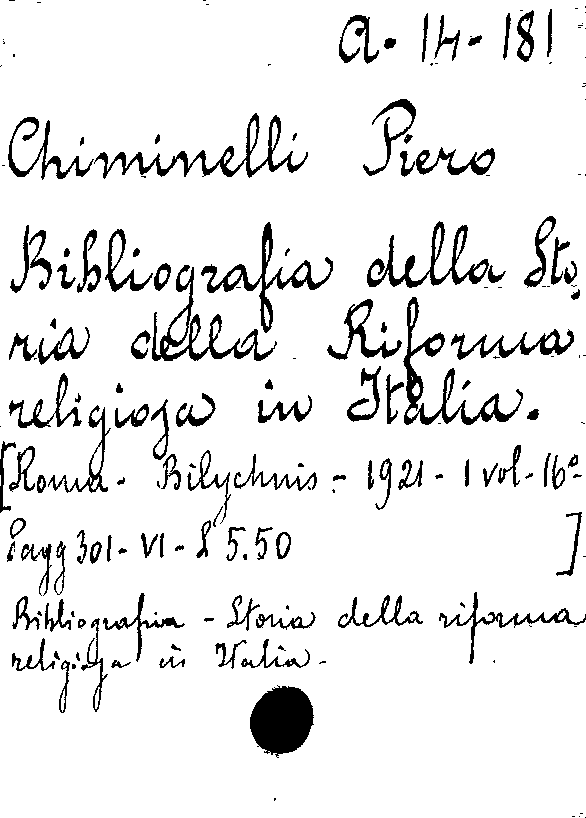 A-14-181
Chiminelli Piero
Bibliografia della Sto
ria della Riforma
religiosa in Italia.
[Roma - Bilychnis - 1921 - 1 vol - 16°-
Pagg 301 - VI - L 5.50 ]
Bibliografia - Storia della riforma
religiosa in Italia -